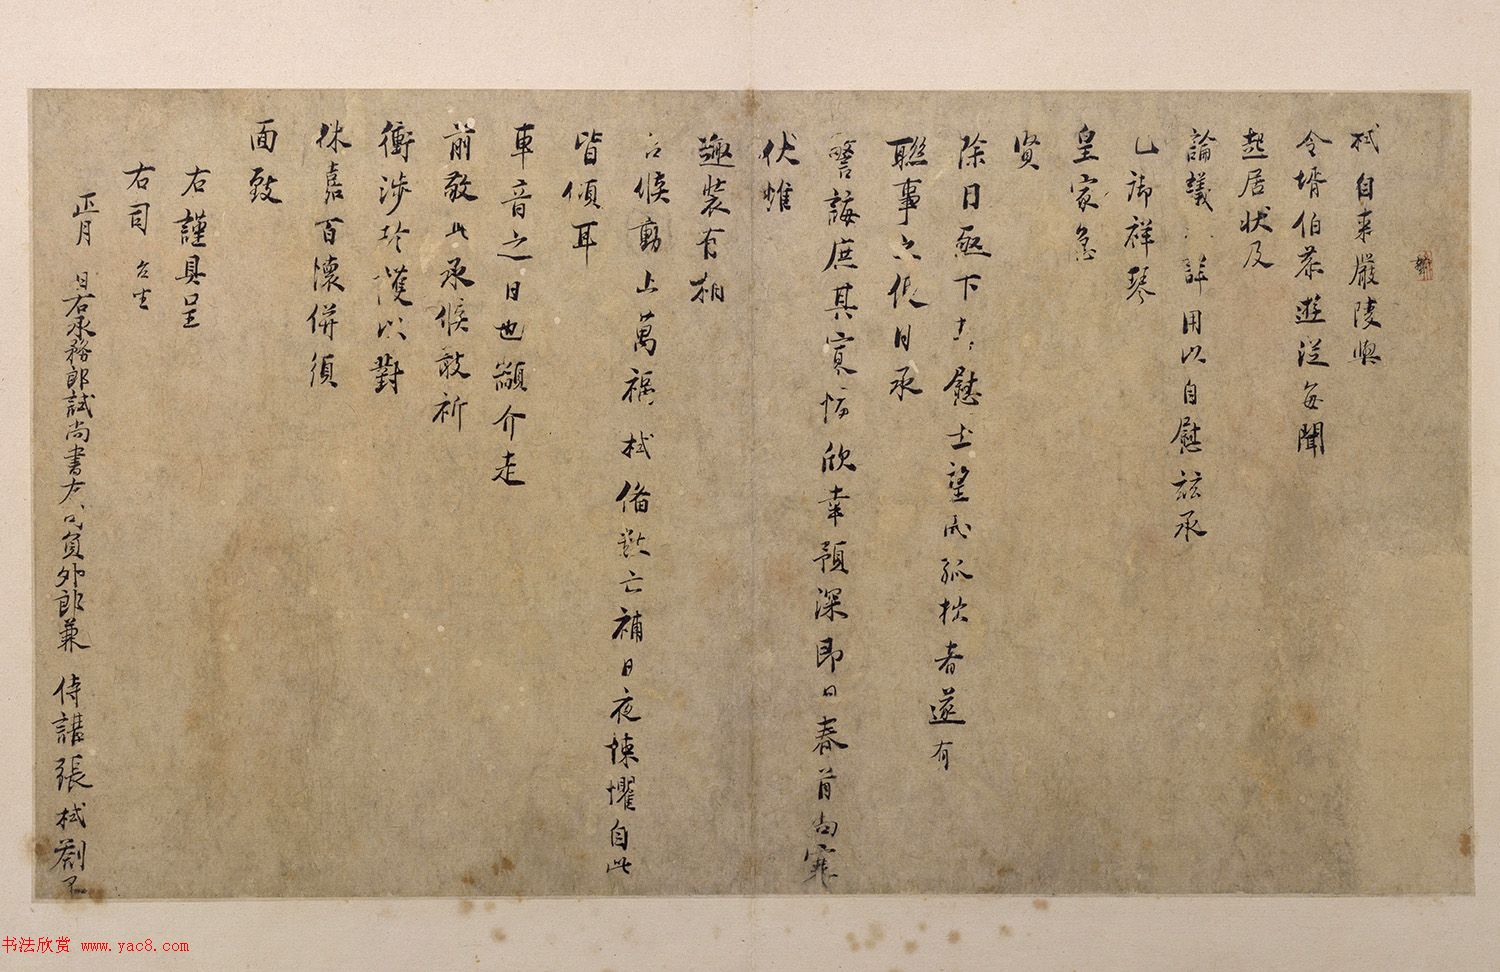 栻自来嚴陵與
令壻伯恭遊從每聞
起居狀及
論議詳用以自慰茲承
已御祥琴
皇家急
賢
除日亟下慰士望而孤拙者遂有
聯事之便日承
警誨庶其寡悔欣幸預深即日春首尚寒
伏惟
趣裝有相
台候動止萬福栻備數亡補日夜悚懼自此
皆傾耳
車音之日也顓介走
前敬此承候敢祈
衝涉珍護以對
休嘉百懷併須
面致
右謹具呈
右司
正月 日右承務郎試尚書左司員外郎兼 侍講張栻劄子
书法欣赏 www.yac8.com